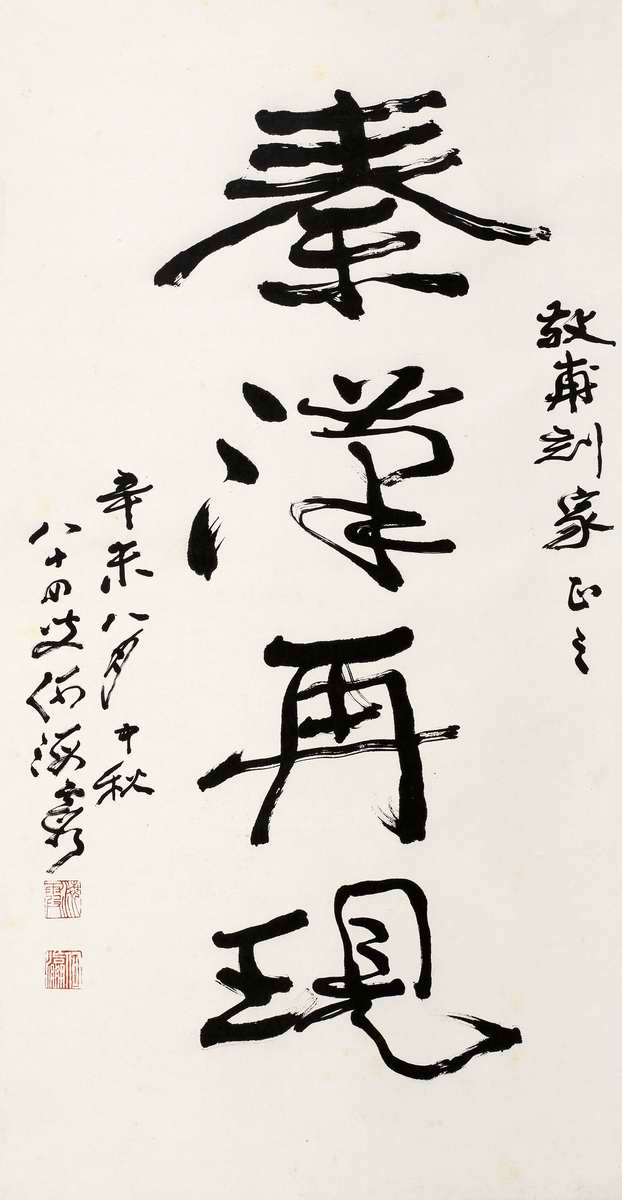 敬甫刻家正之
秦漢再現
辛未八月中秋
八十四叟何海霞
海霞
何瀛